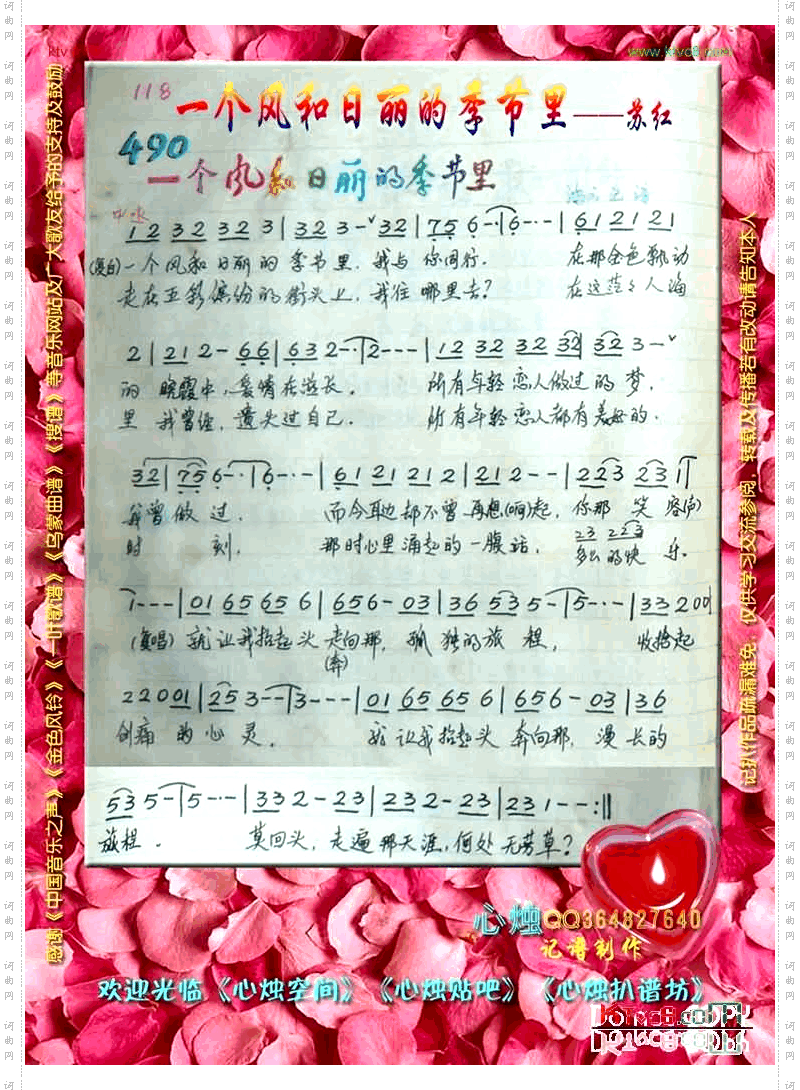 www.ktvc8.com
118
一个风和日丽的季节里——苏红
490
一个风和日丽的季节里
1 2 3 2 3 2 3 2 3 | 3 2 3 - ˇ 3 2 | 7 5 6 - | 6 - · - | 6 1 2 1 2 1 |
(复白)一个风和日丽的季节里，我与你同行。 在那金色飘动
走在五彩缤纷的街头上，我往哪里去？ 在这茫茫人海
2 | 2 1 2 - 6 6 | 6 3 2 - | 2 - - - | 1 2 3 2 3 2 3 2 | 3 2 3 - ˇ
的 晚霞中，爱情在滋长。 所有年轻恋人做过的梦，
里 我曾经，遗失过自己． 所有年轻恋人都有美好的．
3 2 | 7 5 6 - · | 6 - · - | 6 1 2 1 2 1 2 | 2 1 2 - - | 2 2 3 2 3 1 |
我曾做过． 而今耳边却不曾再想(响)起，你那 笑 容(声)
2 3 2 2 3
时 刻， 那时心里涌起的一腹话， 多么的快 乐．
1 - - - | 0 1 6 5 6 5 6 | 6 5 6 - 0 3 | 3 6 5 3 5 - | 5 - · - | 3 3 2 0 0 |
(复唱) 就让我抬起头 走向那，孤独的旅 程， 收拾起
(奔)
2 2 0 0 1 | 2 5 3 - - | 3 - - - | 0 1 6 5 6 5 6 | 6 5 6 - 0 3 | 3 6
创痛 的 心 灵． 就让我抬起头 奔向那，漫 长的
5 3 5 - | 5 - · - | 3 3 2 - 2 3 | 2 3 2 - 2 3 | 2 3 1 - - :||
旅程． 莫回头，走遍那天涯，何处无芳草？
感谢《中国音乐之声》《金色风铃》《一叶歌谱》《乌蒙曲谱》《搜谱》等音乐网站及广大歌友给予的支持及鼓励
记扒作品疏漏难免，仅供学习交流参阅，转载及传播若有改动请告知本人
心烛QQ364827640
记谱制作
欢迎光临《心烛空间》《心烛贴吧》《心烛扒谱坊》
词曲网